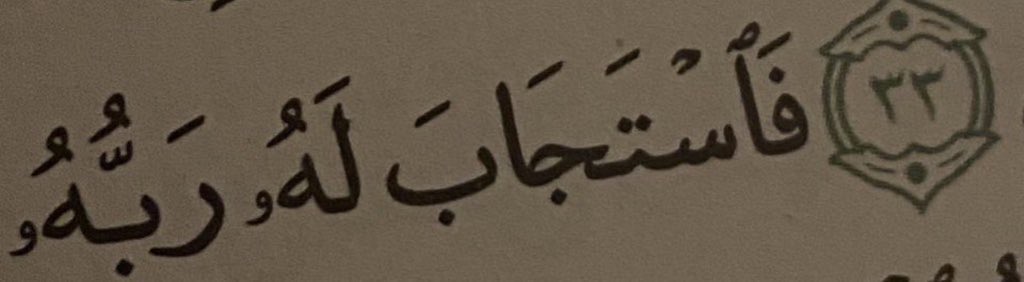 ٣٣ فَٱسْتَجَابَ لَهُۥ رَبُّهُۥ